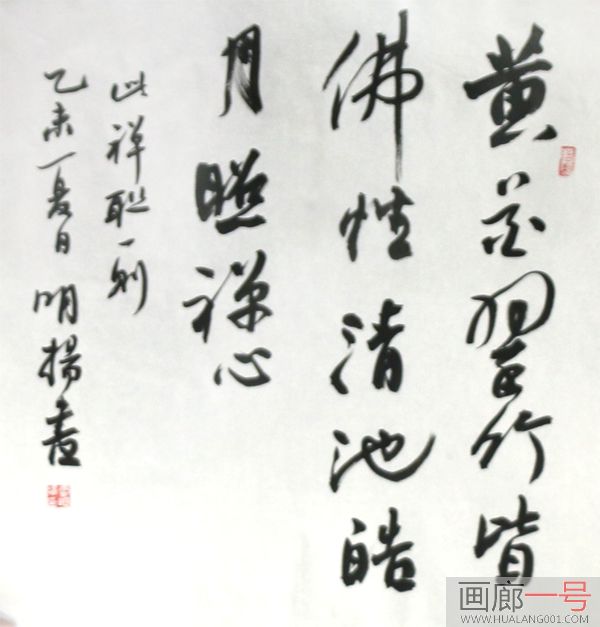 黄花翠竹皆
佛性清池皓
月照禅心
此禅联一则
乙未夏日明扬书
画廊一号
WWW.HUALANG001.COM